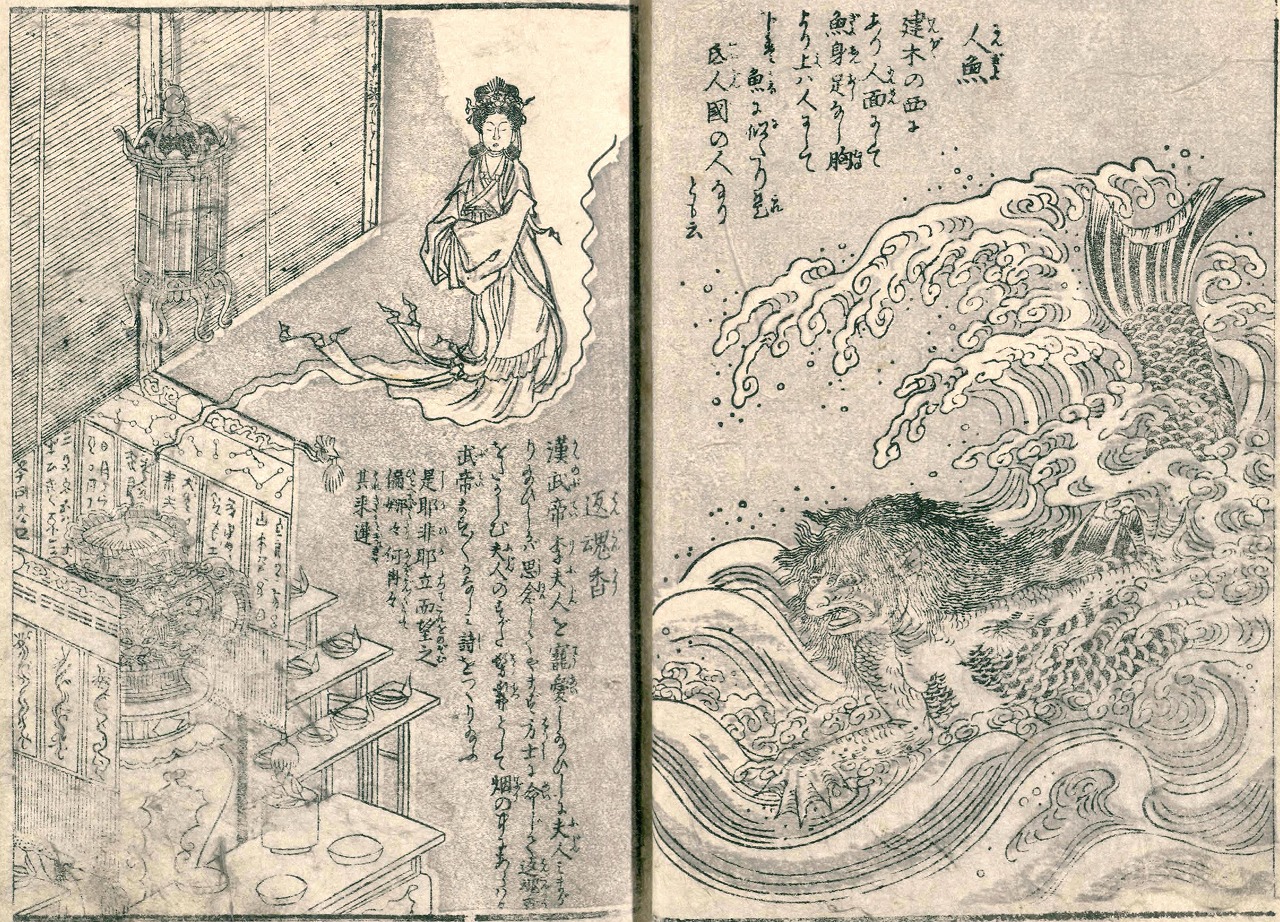 人魚
建木の西に
あり人面にして
魚身足なし胸
より上ハ人にして
下ハ魚に似たり是
氐人國の人なり
とも云
返魂香
漢武帝李夫人を寵愛し給ひしに夫人ミまか
り給ひしかば思念してやまず方士に命じて返魂香
をたかしむ夫人のすがた髣髴として烟の中にあらハる
武帝ますますかなしミ詩をつくり給ふ
是耶非耶立而望之
偏娜々何冉々
其来遅